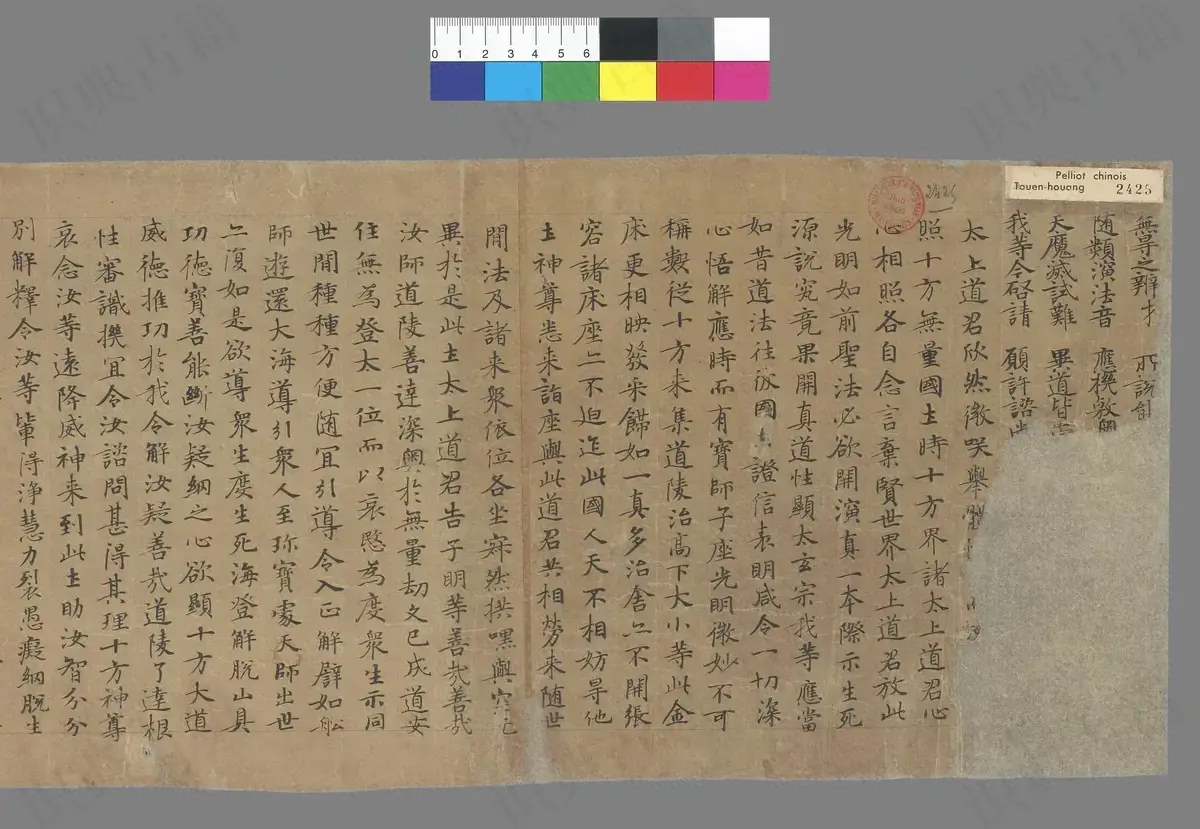 Pelliot chinois
Touen-houang 2425
2425
0 1 2 3 4 5 6
無㝵之辯才 所說
随類演法音 應機敷
天魔滅試難 異道皆
我等今啓請 願許諮
太上道君欣然微咲舉
照十方無量國土時十方界諸太上道君心
心相照各自念言棄賢世界太上道君放此
光明如前聖法必欲開演真一本際示生死
源說究竟果開真道性顯太玄宗我等應當
如昔道法往彼國土證信表明咸令一切深
心悟解應時而有寶師子座光明微妙不可
稱數從十方来集道陵治髙下大小等此金
床更相映發采餙如一真多治舍亦不開張
容諸床座亦不迫迮此國人天不相妨㝵他
土神尊悉来詣座與此道君共相勞来随世
聞法及諸来衆依位各坐寂然拱嘿與空
異於是此土太上道君告子明等善哉善哉
汝師道陵善達深奥於無量劫久已成道安
住無為登太一位而以哀愍為度衆生示同
世間種種方便随宜引導令入正解譬如舩
師遊還大海導引衆人至珎寶處天師出世
亦復如是欲導衆生度生死海登解脱山具
功德寶善能斷汝疑納之心欲顯十方大道
威德推功於我令解汝疑善哉道陵了達根
性審識機冝令汝諮問甚得其理十方神尊
哀念汝等遠降威神来到此土助汝智分分
別解釋令汝等輩得浄慧力裂愚癡納脱生